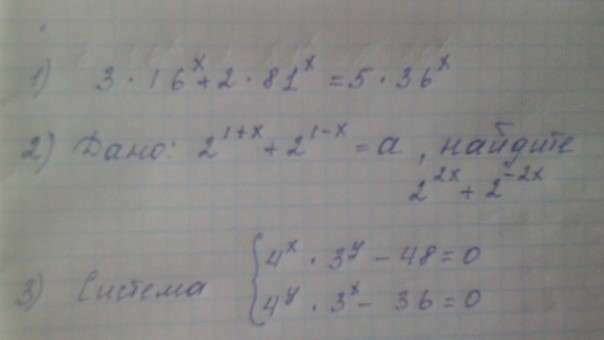 1) 3 · 16^x + 2 · 81^x = 5 · 36^x
2) Дано: 2^(1+x) + 2^(1-x) = a, найдите
2^(2x) + 2^(-2x)
3) Система { 4^x · 3^y - 48 = 0
4^y · 3^x - 36 = 0